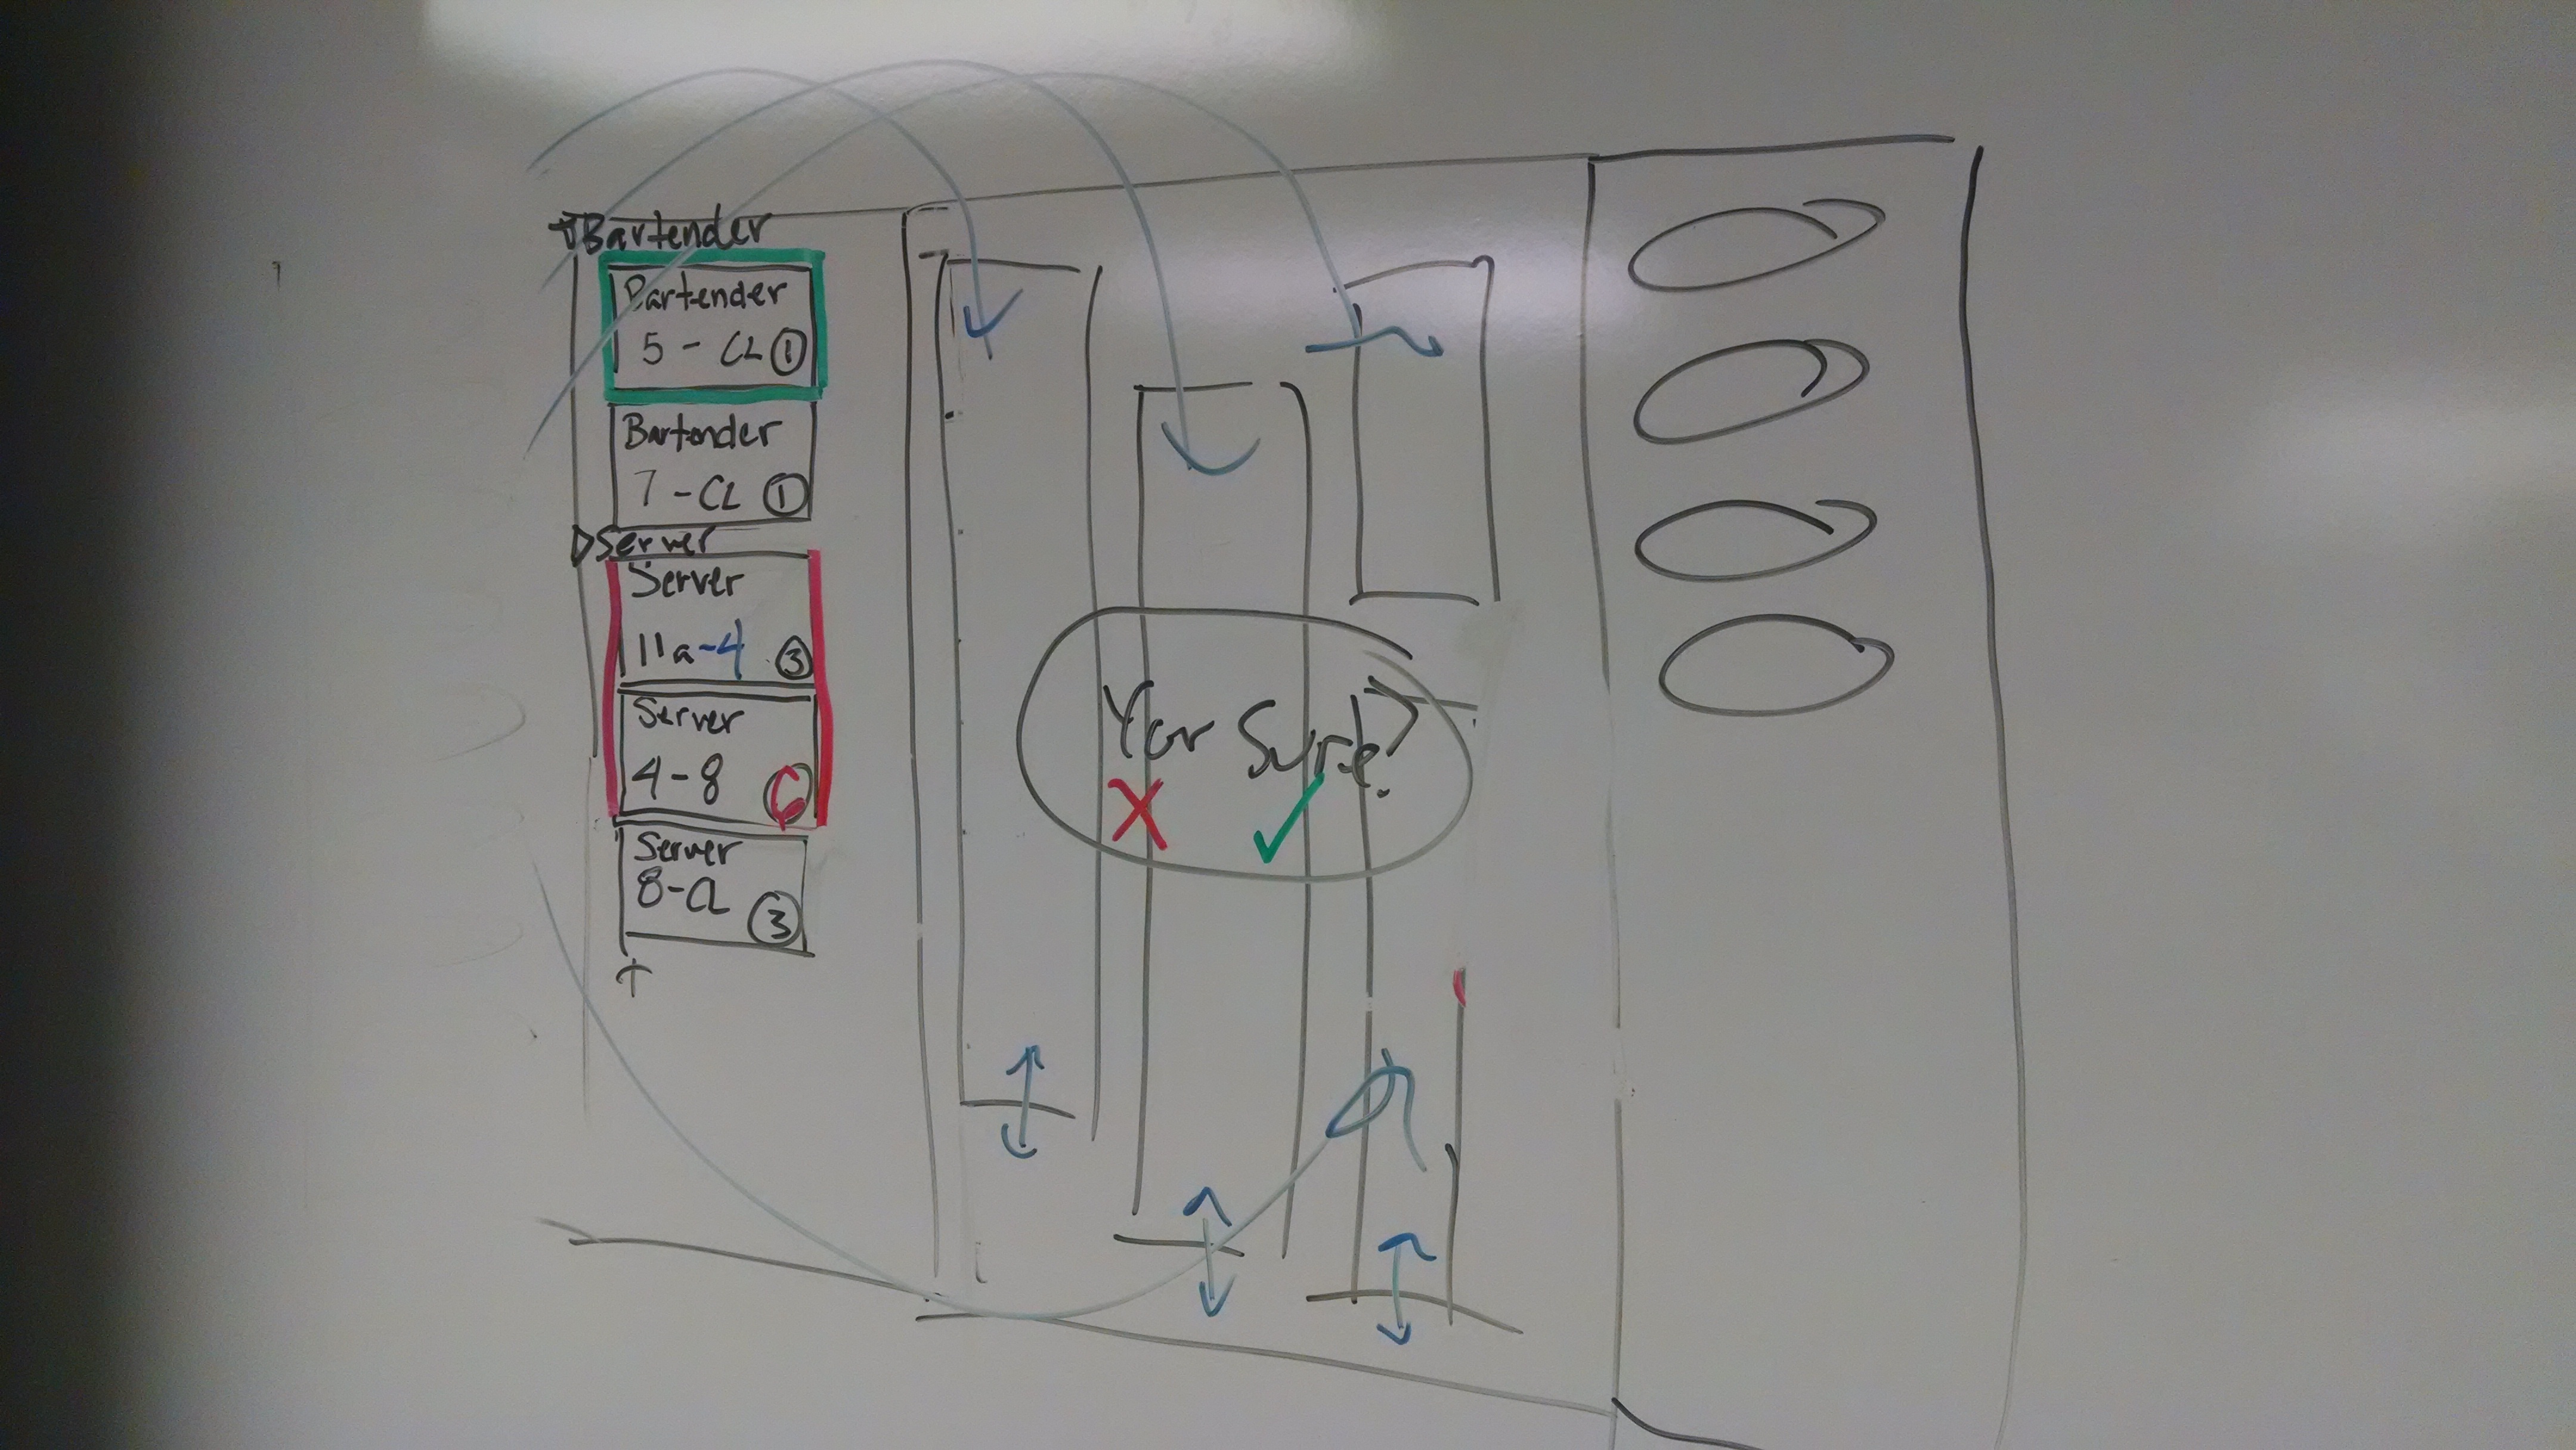 ▽Bartender
Bartender
5 - CL ①
Bartender
7 - CL ①
▷Server
Server
11a-4 ③
Server
4-8 6
Server
8-CL ③
+
Yor Sure?
X ✓